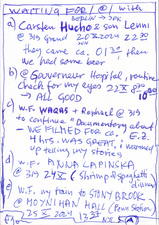 WAITING FOR / @ / with
BERLIN → JFK
a) Carsten Hucho & son Lenni
@ 319 Grand 20 X 2024 22:30
they came ca. 01:30, then
we had some beer
b) @ Gouverneur Hospital, routine
check for my eyes 22 X
→ ALL GOOD 10:00
c) W.F. WAQAS + Raphael @ 319
to continue "Documentary about
- WE FILMED FOR ca. E.Z.
4 hrs. WAS GREAT, i warmed
up telling my stories
d) W.F. ANNA LAPINSKA
@ 319 24 X (Shrimp & spaghetti
dinner)
e) W.F. my train to STONY BROOK
@ MOYNIHAN HALL (Penn Station)
25 X 2024 13:35